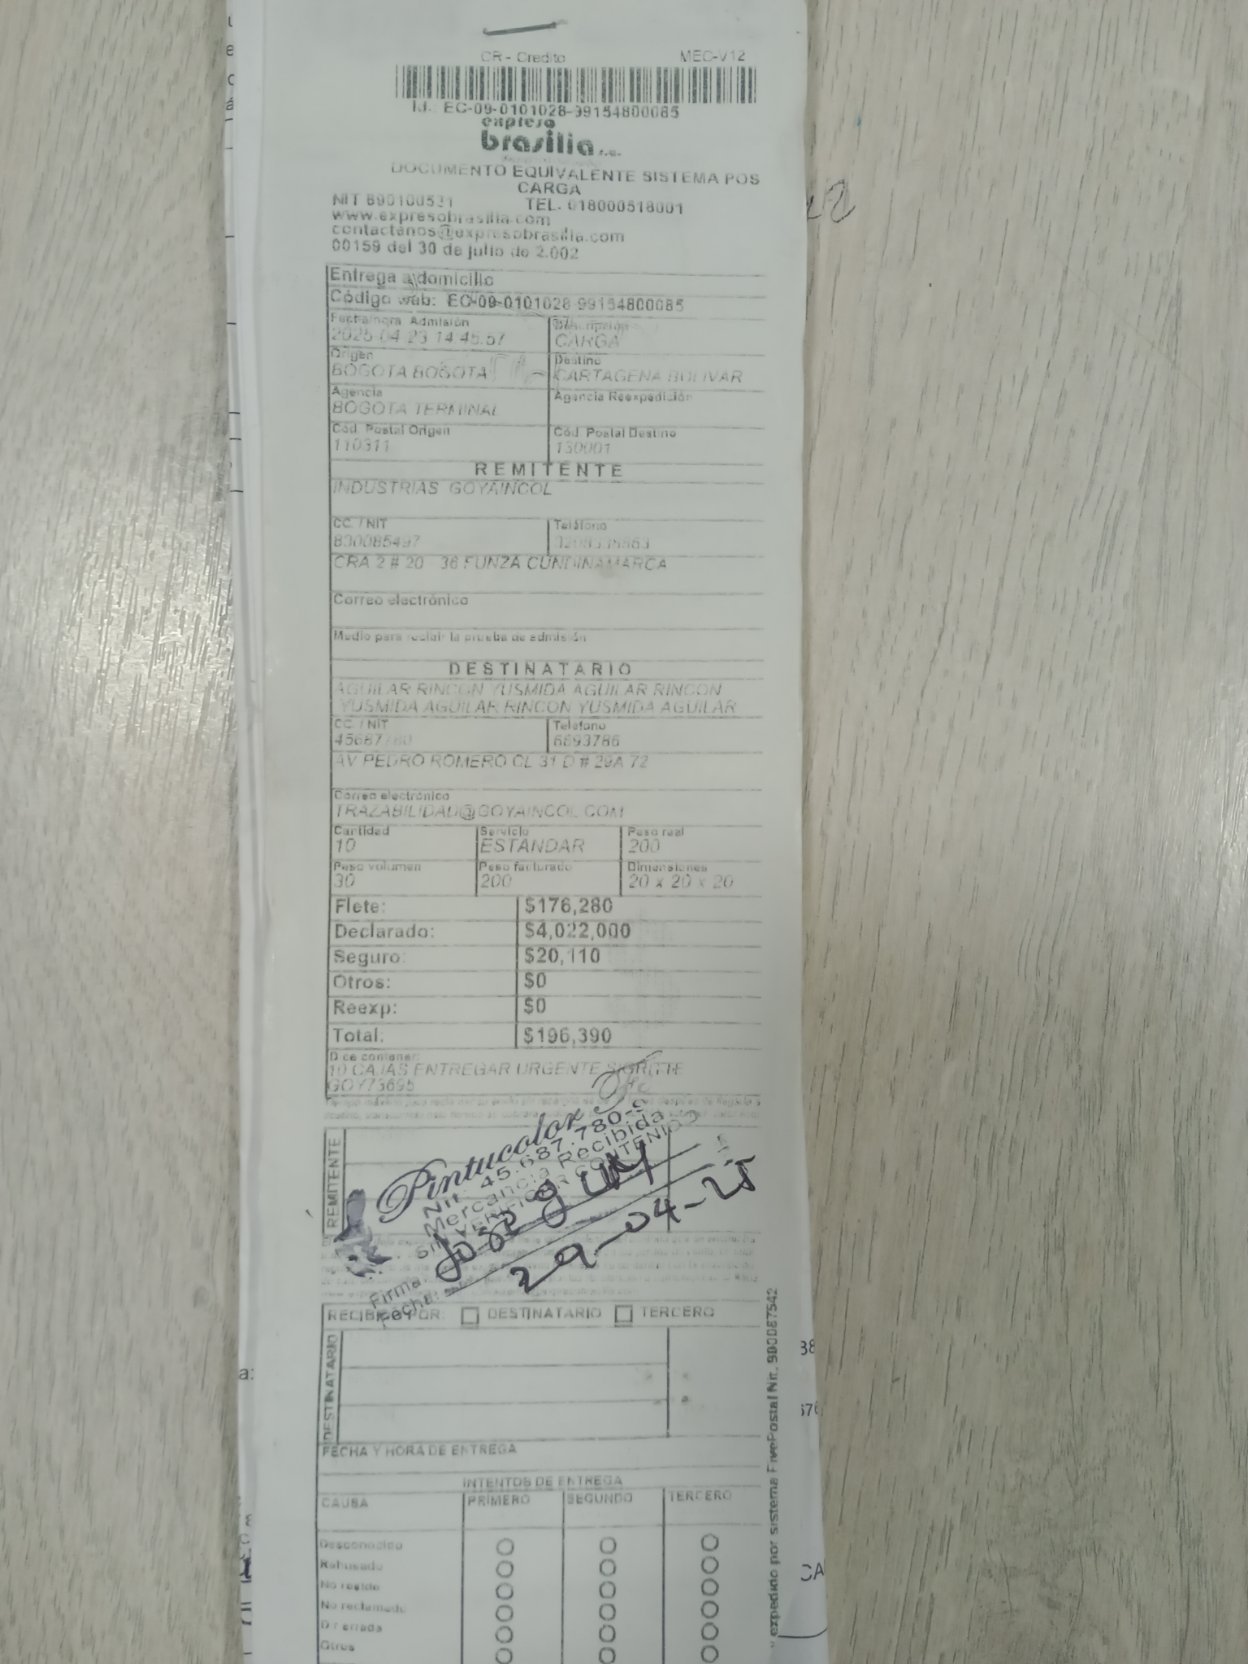 CR - Credito MEC-V12
Id.: EC-09-0101028-99154800085
expreso
brasilia s.a.
DOCUMENTO EQUIVALENTE SISTEMA POS
CARGA
NIT 890100531 TEL. 018000518001
www.expresobrasilia.com
contactanos@expresobrasilia.com
00159 del 30 de julio de 2.002
Entrega a domicilio
Código web: EC-09-0101028-99154800085
Fecha/hora Admisión Descripción
2025-04-23 14:45:57 CARGA
Origen Destino
BOGOTA BOGOTA CARTAGENA BOLIVAR
Agencia Agencia Reexpedición
BOGOTA TERMINAL
Cód. Postal Origen Cód. Postal Destino
110311 130001
REMITENTE
INDUSTRIAS GOYAINCOL
CC. / NIT Teléfono
830085497
CRA 2 # 20 36 FUNZA CUNDINAMARCA
Correo electrónico
Medio para recibir la prueba de admisión
DESTINATARIO
AGUILAR RINCON YUSMIDA AGUILAR RINCON
YUSMIDA AGUILAR RINCON YUSMIDA AGUILAR
CC. / NIT Teléfono
45687780 6693786
AV PEDRO ROMERO CL 31 D # 29A 72
Correo electrónico
TRAZABILIDAD@GOYAINCOL.COM
Cantidad Servicio Peso real
10 ESTANDAR 200
Peso volumen Peso facturado Dimensiones
30 200 20 x 20 x 20
Flete: $176,280
Declarado: $4,022,000
Seguro: $20,110
Otros: $0
Reexp: $0
Total: $196,390
Dice contener:
10 CAJAS ENTREGAR URGENTE SIGRITTE
GOY73695
REMITENTE
Pintucolor
Nit. 45.687.780-9
Mercancia Recibida
Sin VERIFICAR CONTENIDO
Firma:
Fecha: 29-04-25
RECIBIDO POR: DESTINATARIO TERCERO
DESTINATARIO
FECHA Y HORA DE ENTREGA
INTENTOS DE ENTREGA
CAUSA PRIMERO SEGUNDO TERCERO
Desconocido
Rehusado
No reside
No reclamado
Dir errada
Otros
expedido por sistema FivePostal Nit. 900087542